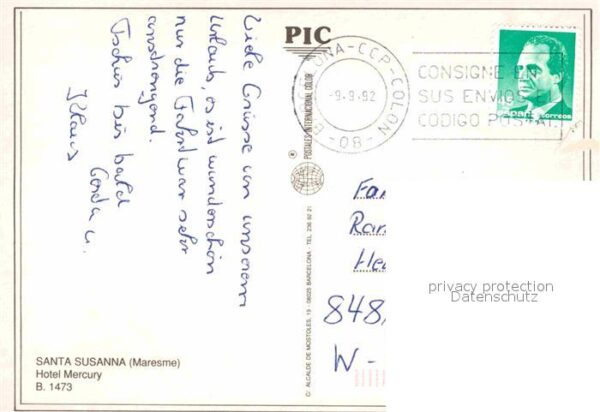 PIC
BARCELONA-CCP-COLON
-9-9-92
-08-
CONSIGNE EN
SUS ENVIOS EL
CODIGO POSTAL
España correos
Viele Grüsse von unserem
Urlaub, es ist wunderschön
nur die Fahrt war sehr
anstrengend.
Tschüs bis bald
Gerda u.
Klaus
POSTALES INTERNACIONAL COLOR
C/. ALCALDE DE MOSTOLES, 13 - 08025 BARCELONA - TEL. 236 92 21
Fa
Ra
He
848
W -
privacy protection
Datenschutz
SANTA SUSANNA (Maresme)
Hotel Mercury
B. 1473